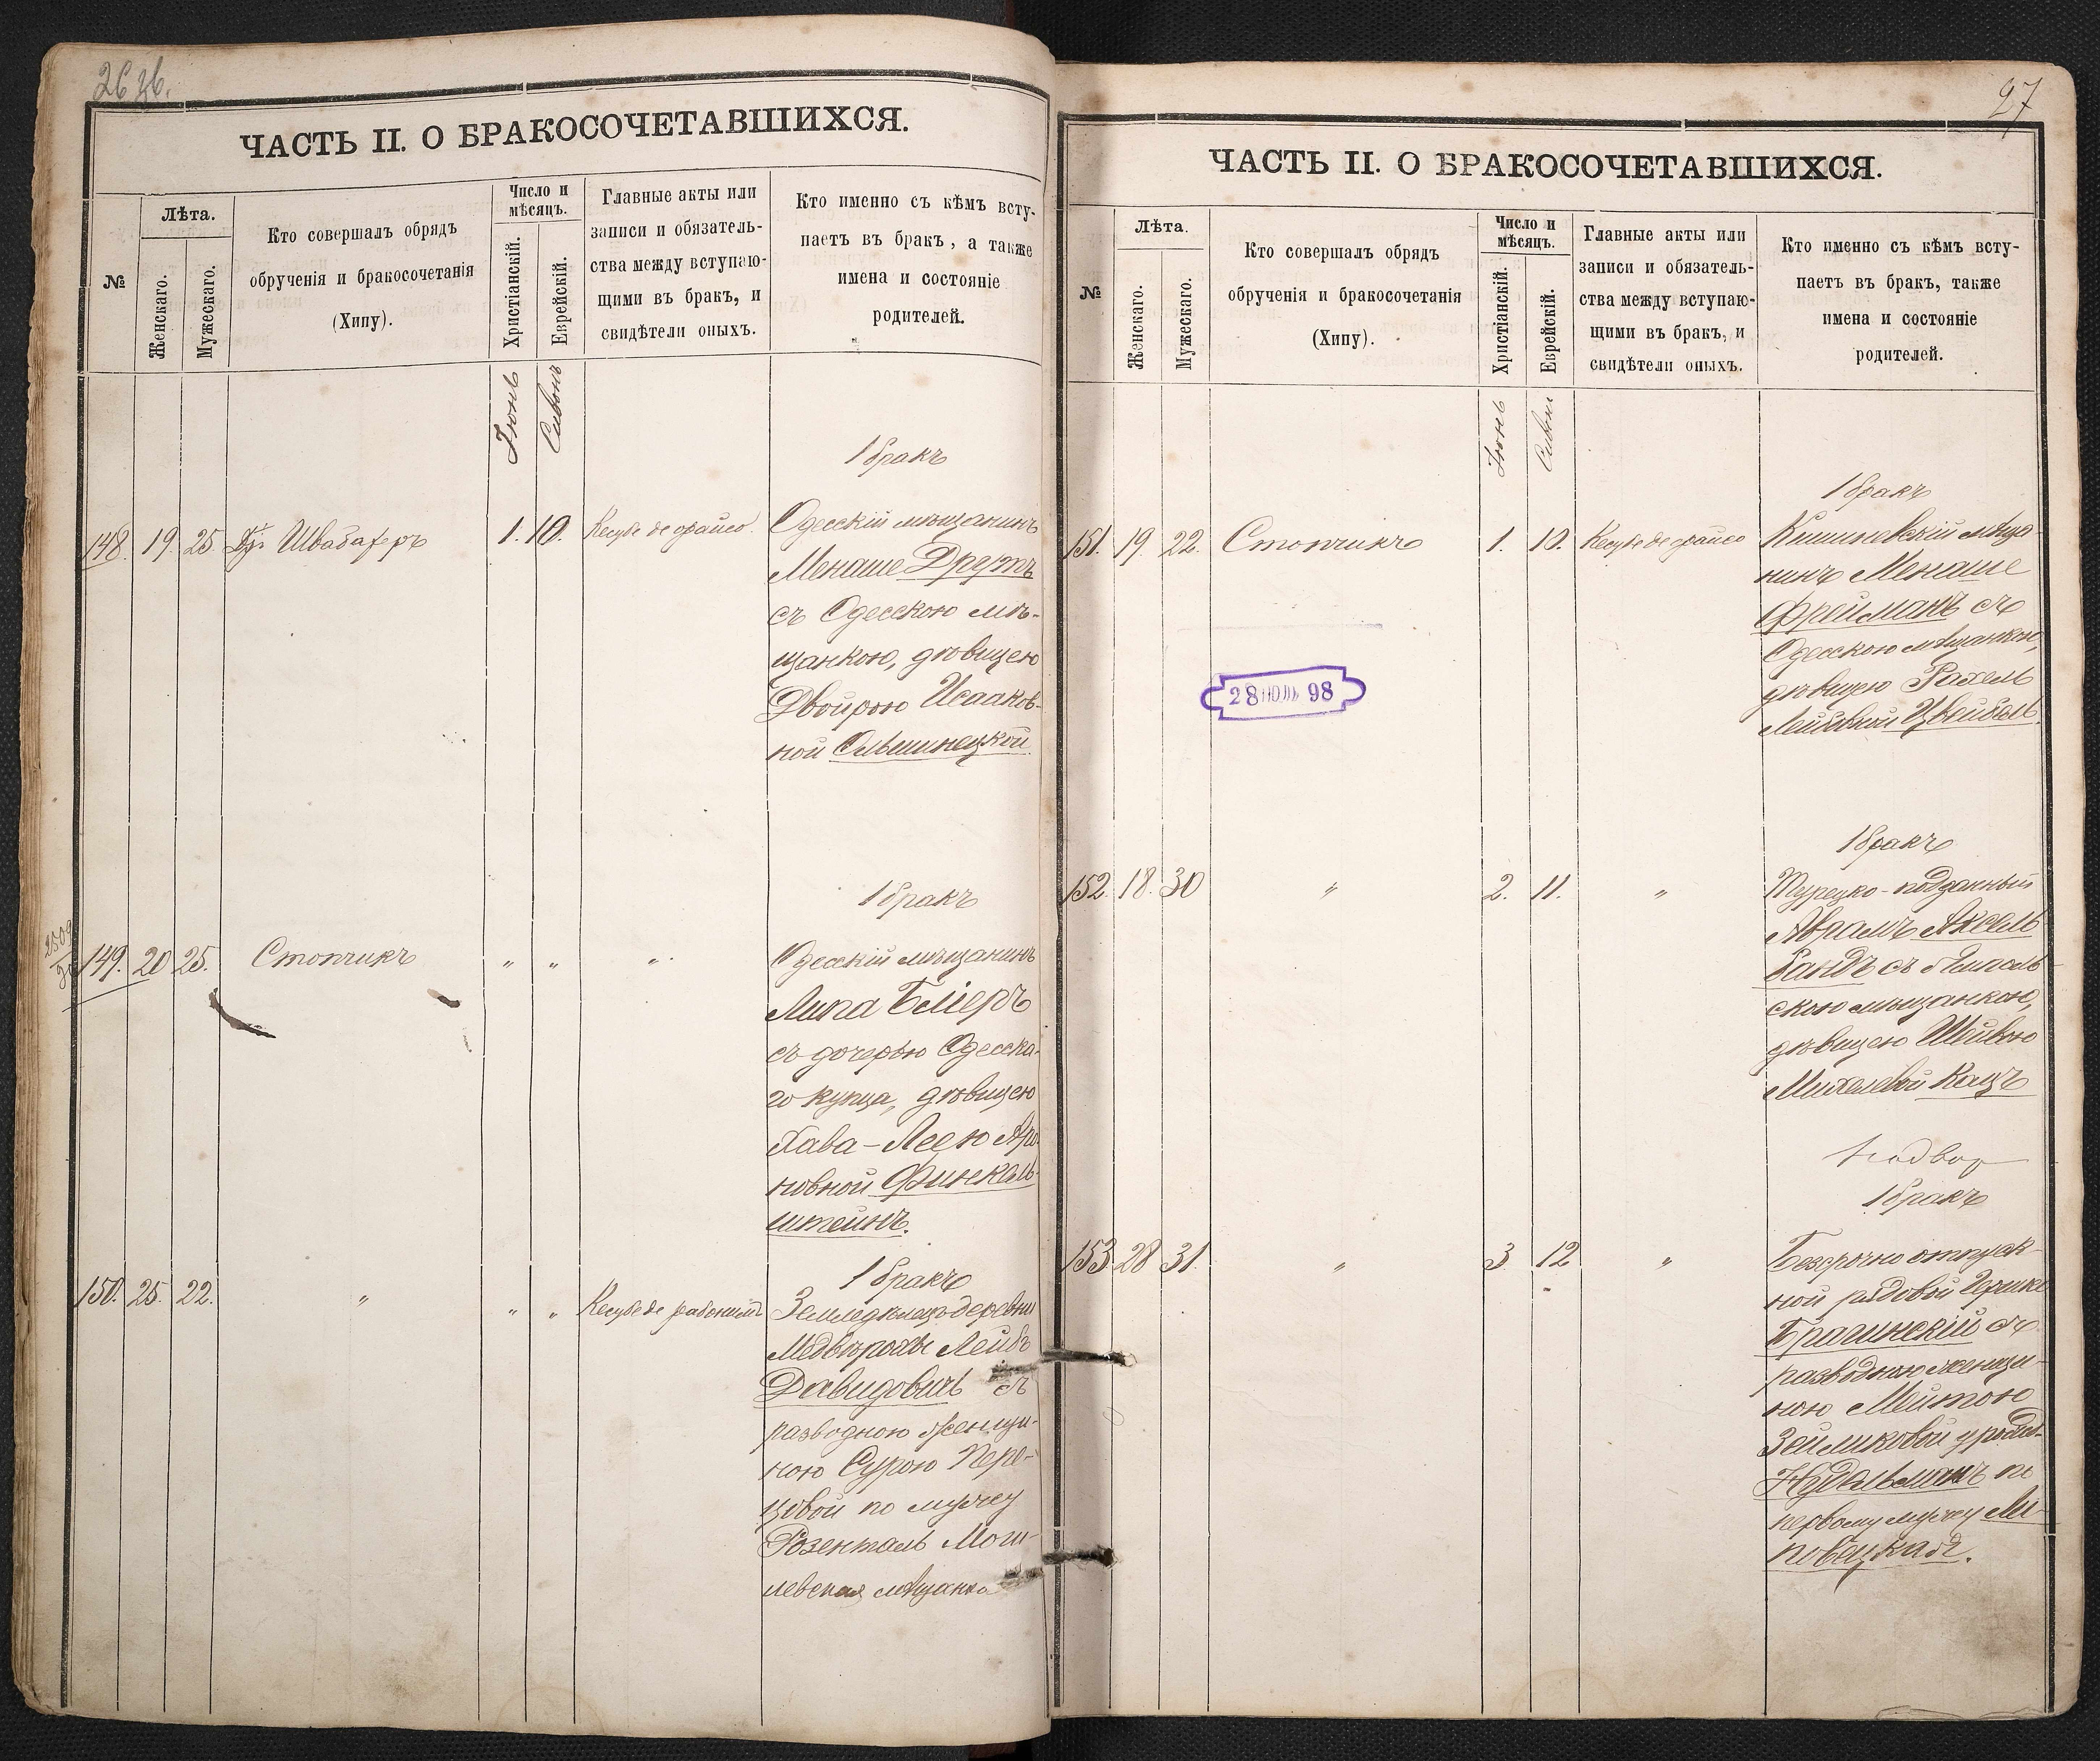 26 об.
ЧАСТЬ II. О БРАКОСОЧЕТАВШИХСЯ.
№
Лѣта.
Женскаго.
Мужескаго.
Кто совершалъ обрядъ
обрученія и бракосочетанія
(Хипу).
Число и
мѣсяцъ.
Христіанскій.
Еврейскій.
Главные акты или
записи и обязатель-
ства между вступаю-
щими въ бракъ, и
свидѣтели оныхъ.
Кто именно съ кѣмъ всту-
паетъ въ бракъ, а также
имена и состояніе
родителей.
Іюнь
Сивонъ
1 бракъ
148. 19. 25. Др. Швабахеръ 1. 10. Кесубе де орайсо.
Одесскій мѣщанинъ
Менаше Друтъ
съ Одесскою мѣ-
щанкою, дѣвицею
Двойрою Исааков-
ной Ольшинецкой
1 бракъ
149. 20 25. Стопчикъ " " "
Одесскій мѣщанинъ
Липа Бліеръ
съ дочерью Одесска-
го купца, дѣвицею
Хава-Леею Аро-
новной Финкель-
штейнъ.
1 бракъ
150. 25. 22. " " " Кесубе де рабонимъ
Земледѣлецъ деревни
Лейбъ
Давидовичъ съ
разводною женщи-
ною Сурою Пере-
цовой по мужу
Розенталь Моги-
левская мѣщанка
27
ЧАСТЬ II. О БРАКОСОЧЕТАВШИХСЯ.
№
Лѣта.
Женскаго.
Мужескаго.
Кто совершалъ обрядъ
обрученія и бракосочетанія
(Хипу).
Число и
мѣсяцъ.
Христіанскій.
Еврейскій.
Главные акты или
записи и обязатель-
ства между вступаю-
щими въ бракъ, и
свидѣтели оныхъ.
Кто именно съ кѣмъ всту-
паетъ въ бракъ, также
имена и состояніе
родителей.
Іюнь
Сивонъ
1 бракъ
151. 19. 22. Стопчикъ 1. 10. Кесубе де орайсо
Кишиневскій мѣща-
нинъ Менаше
Фрейманъ съ
Одесскою мѣщанкою,
дѣвицею Рахель
Лейбовной Цвейбель
28 ІЮЛ 98
1 бракъ
152. 18. 30 " 2. 11. "
Турецко-подданный
Аврамъ Аксель
Бандъ съ
скою мѣщанкою,
дѣвицею Шейвою
Михелевой Кацъ
1 бракъ
153. 28 31. " 3 12 "
Безсрочно отпуск-
ной рядовой Гершко
Брагинскій съ
разводною женщи-
ною Мейтою
Зейликовой урожд.
Нудельманъ по
первому мужу Ли-
повецкая.